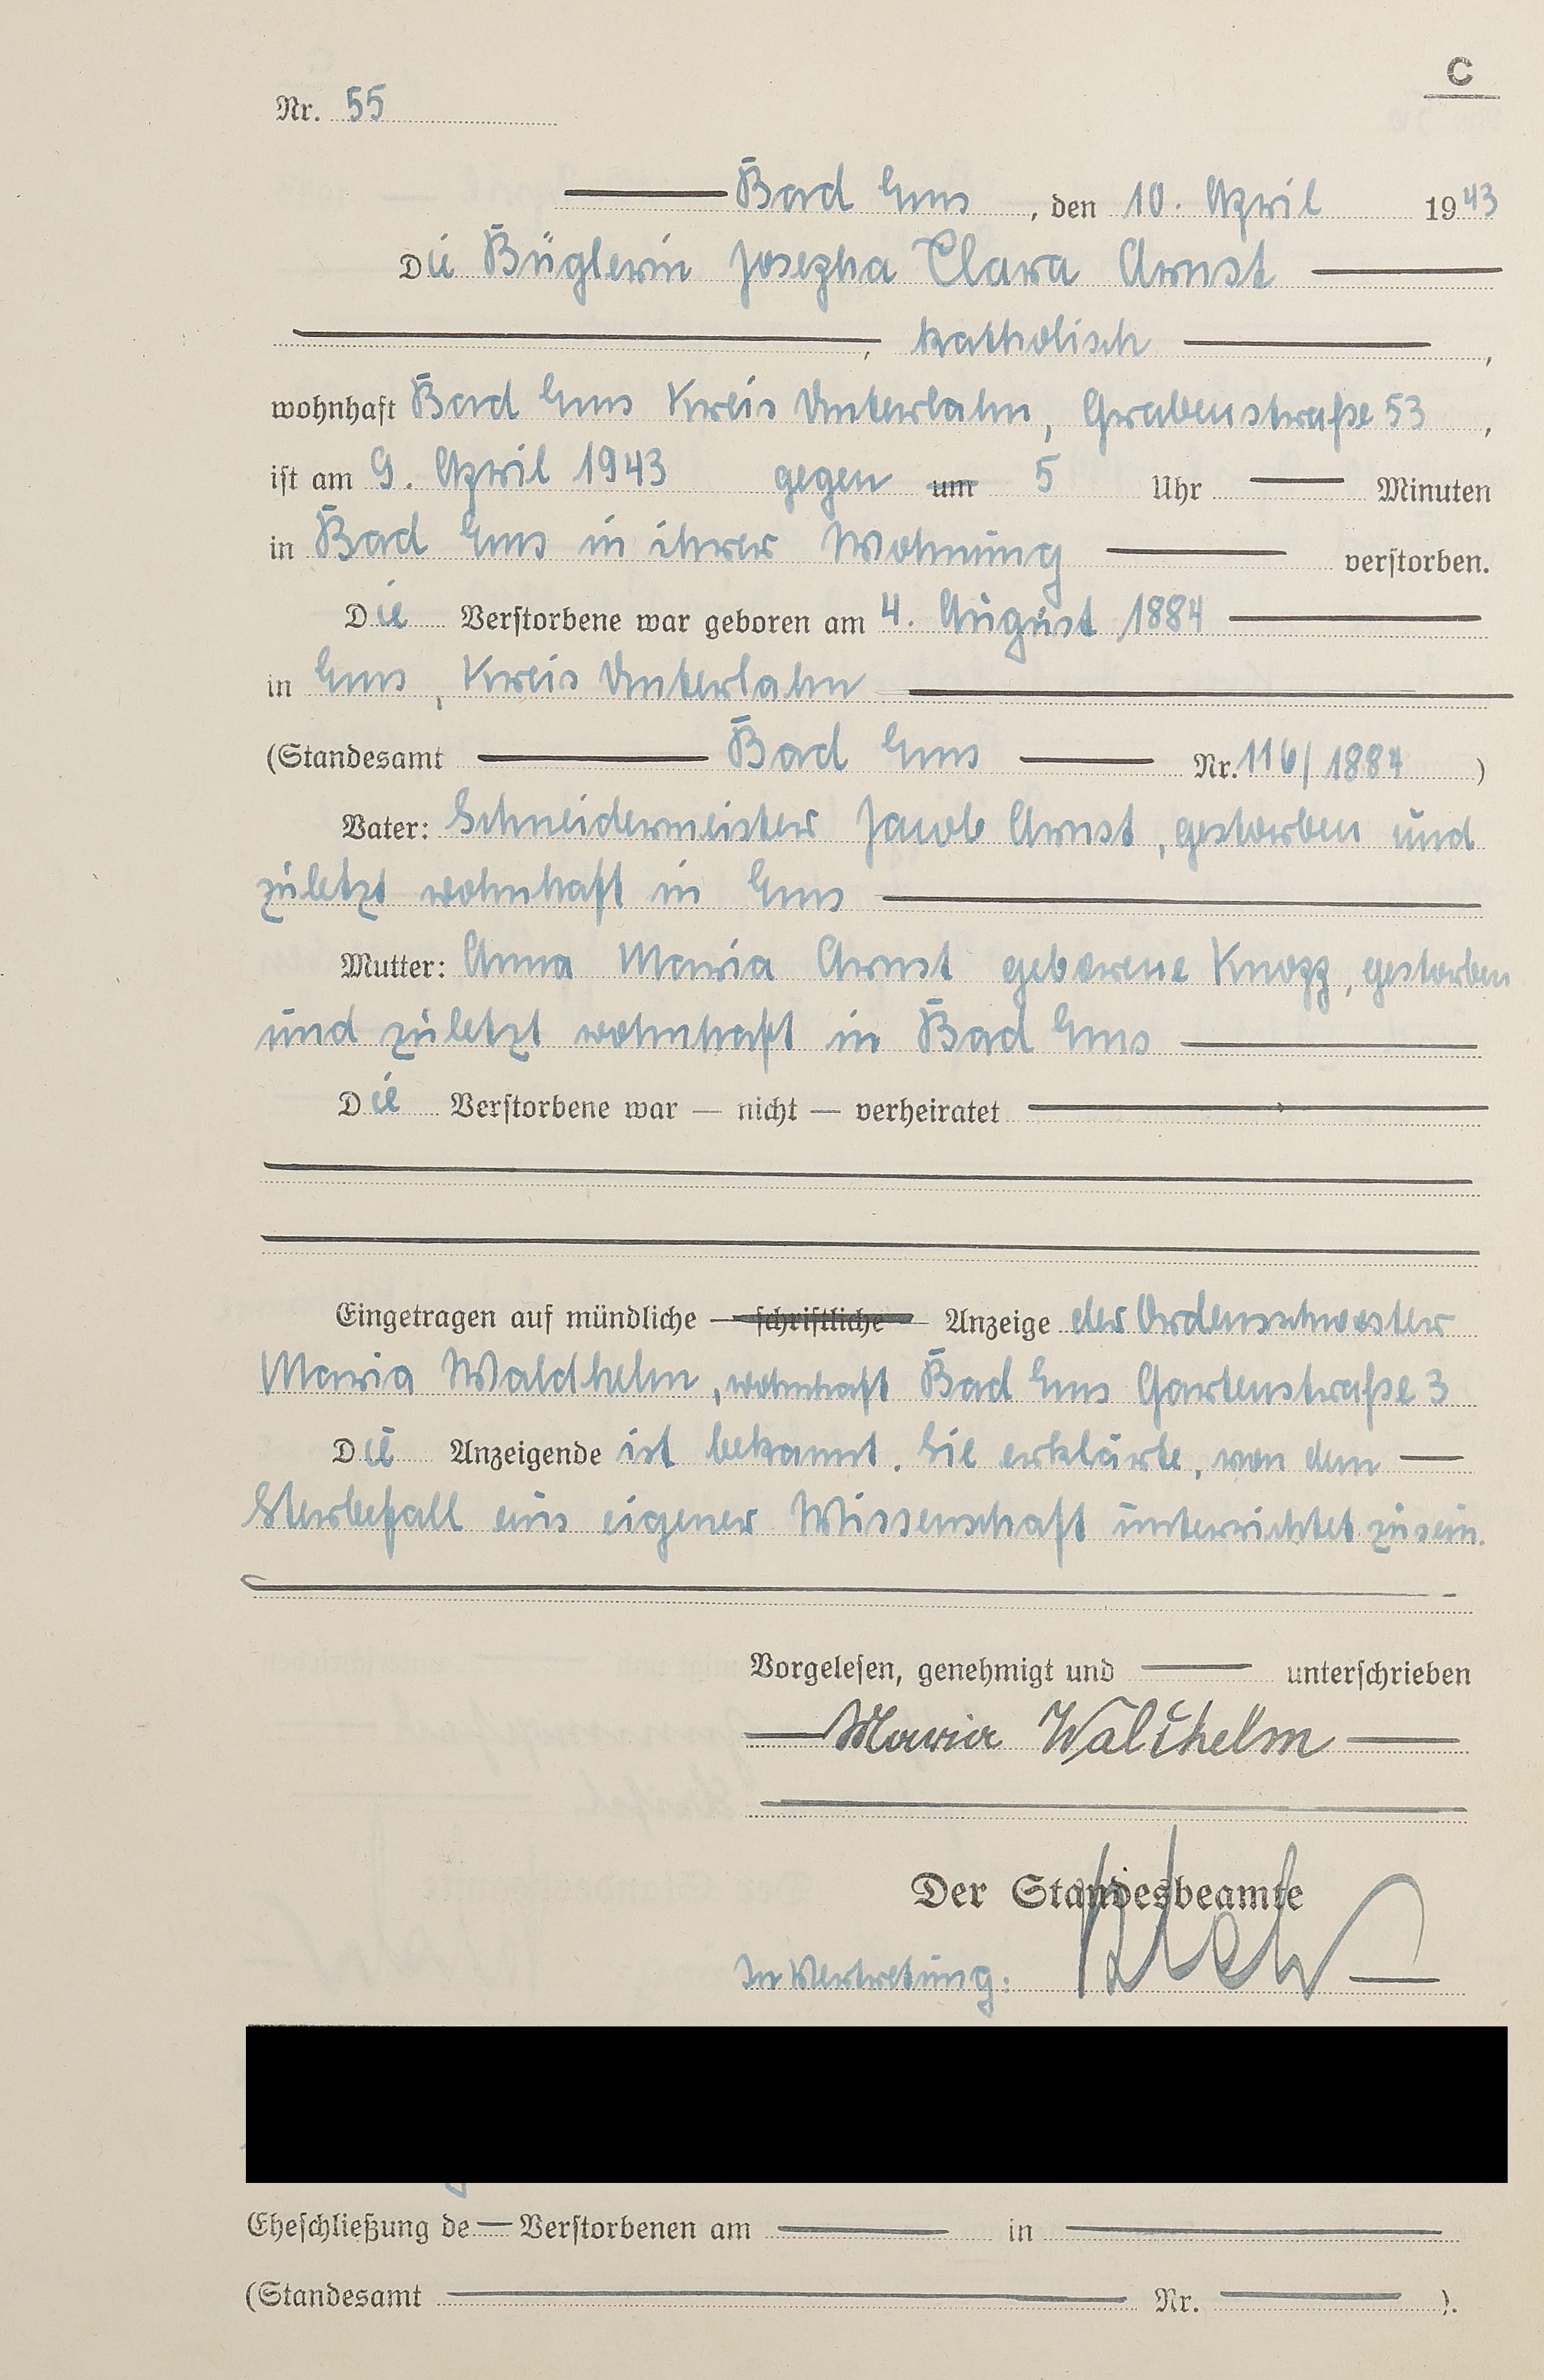 C
Nr. 55
Bad Ems, den 10. April 1943
Die Büglerin Josepha Clara Arnst
, katholisch ,
wohnhaft Bad Ems Kreis Unterlahn, Grabenstraße 53 ,
ist am 9. April 1943 gegen um 5 Uhr Minuten
in Bad Ems in ihrer Wohnung verstorben.
Die Verstorbene war geboren am 4. August 1884
in Ems, Kreis Unterlahn
(Standesamt Bad Ems Nr. 116/1884 )
Vater: Schneidermeister Jacob Arnst, gestorben und
zuletzt wohnhaft in Ems
Mutter: Anna Maria Arnst geborene Knopp, gestorben
und zuletzt wohnhaft in Bad Ems
Die Verstorbene war — nicht — verheiratet
Eingetragen auf mündliche — schriftliche — Anzeige der Ordensschwester
Maria Waldhelm, wohnhaft Bad Ems Gartenstraße 3
Die Anzeigende ist bekannt. Sie erklärte, von dem
Sterbefall aus eigener Wissenschaft unterrichtet zu sein.
Vorgelesen, genehmigt und unterschrieben
Maria Waldhelm
Der Standesbeamte
In Vertretung:
Eheschließung de Verstorbenen am in
(Standesamt Nr. ).